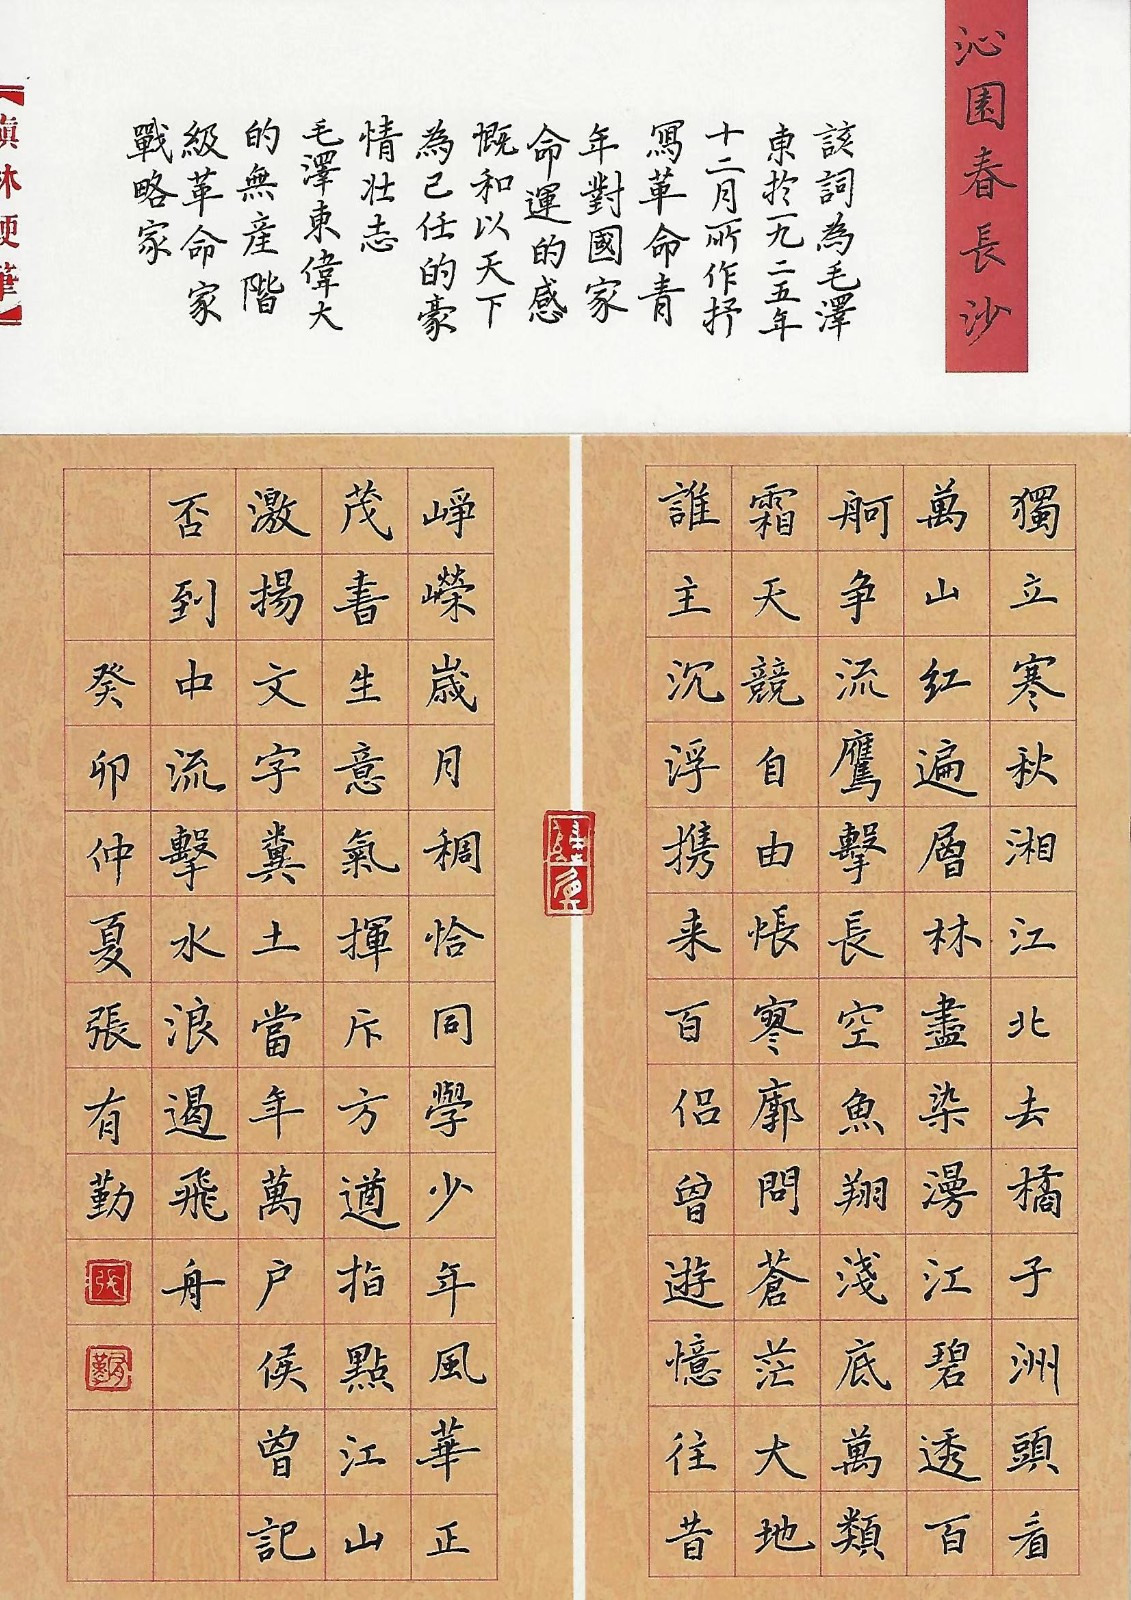 沁園春長沙
該詞為毛澤
東於一九二五年
十二月所作抒
寫革命青
年對國家
命運的感
慨和以天下
為己任的豪
情壯志
毛澤東偉大
的無產階
級革命家
戰略家
林硬筆
獨立寒秋湘江北去橘子洲頭看
萬山紅遍層林盡染漫江碧透百
舸争流鷹擊長空魚翔淺底萬類
霜天競自由悵寥廓問蒼茫大地
誰主沉浮携来百侶曾遊憶往昔
崢嶸歲月稠恰同學少年風華正
茂書生意氣揮斥方遒指點江山
激揚文字糞土當年萬户侯曾記
否到中流擊水浪遏飛舟
癸卯仲夏張有勤